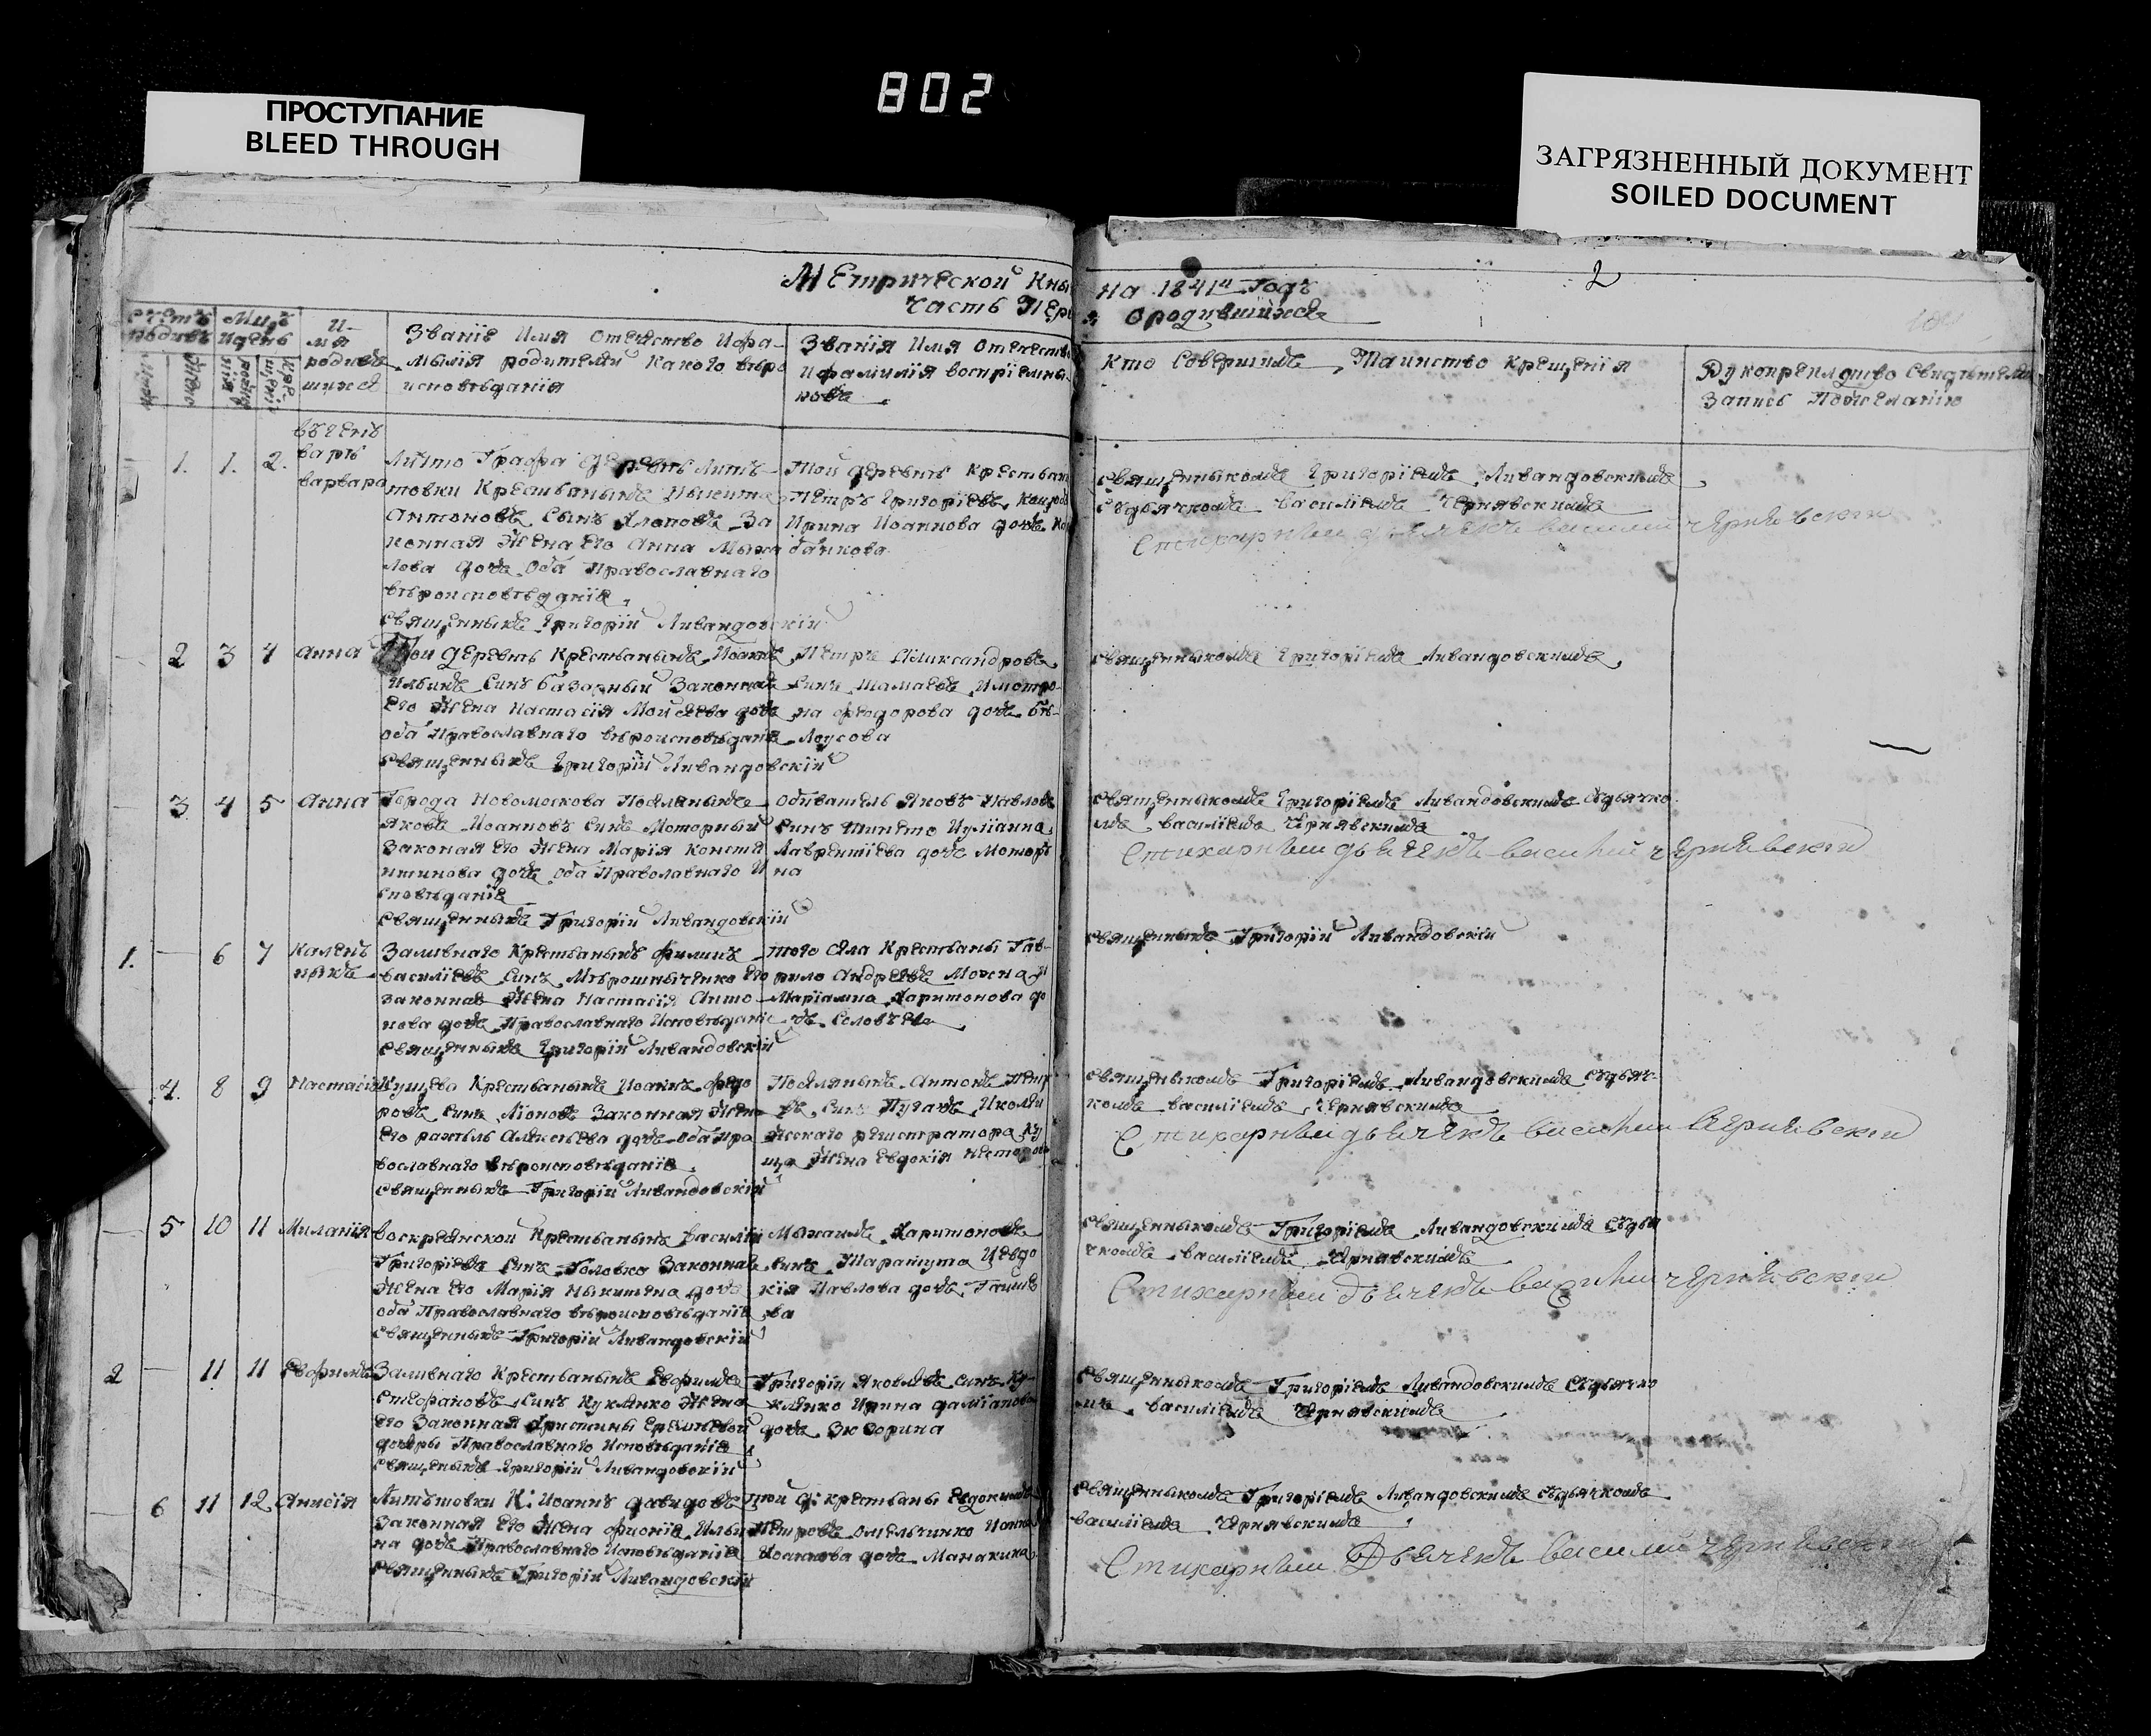 802
ПРОСТУПАНИЕ
BLEED THROUGH
ЗАГРЯЗНЕННЫЙ ДОКУМЕНТ
SOILED DOCUMENT
Метрической Кны
часть Пер
на 1841й Годъ
2
я ородившихся
счетъ
родивъ
Мцъ
Идень
И-
мя
родивъ
шихся
Званіе Имя Отечество Ифа-
мылія родителей Какого веро
исповѣданія
Званія Имя Отечество
Ифамилія воспріемны-
ковъ
Кто Совершилъ Таинство Крещенія
Рукоприкладство Свидѣтелей
Запись Пожеланію
1. 1. 2.
варвара
Литмо Графа деревнѣ Липъ-
товки Крестьянынъ Ныкита
Антоновъ Сынъ За
конная Жена его Анна Миха
лова дочь Оба Православнаго
вѣроисповѣданія
Священныкъ Григорій Ливандовскій
Той деревнѣ Крестьян
Петръ Григоріевъ
Ирина Иоаннова дочь
священныкомъ Григоріемъ Ливандовскимъ
Сдьячкомъ Василіемъ Чернявскимъ
Стихарный дьячекъ василий Чернявский
2 3 4 Анна
Той деревнѣ Крестьянынъ Иоаннъ
Ильинъ Сынъ базарный Законная
его Жена Настасія Мойсеева дочь
оба Православнаго вѣроисповѣданія
Священныкъ Григорій Ливандовскій
Петръ Александровъ
Сынъ Шамаевъ Иматро-
на федорова дочь бѣ-
лоусова
священныкомъ Григоріемъ Ливандовскимъ
3 4 5 Анна
Города Новомоскова Поселянынъ
Яковъ Иоанновъ Сынъ Моторный
Законая его Жена Марія Конста
нтинова дочь Оба Православнаго И
сповѣданія
Священныкъ Григорій Ливандовскій
Обиватель Яковъ Павловъ
Сынъ Иуліанна
Лаврентіева дочь Моторы
на
священныкомъ Григоріемъ Ливандовскимъ Сдьячко
мъ василіемъ Чернявскимъ
Стихарный дьячекъ василий чернявский
1. — 6 7 Калены
ныкъ
Заливнаго Крестьянынъ филипъ
василіевъ Сынъ Мѣрошныченко Его
законная Жена Настасія Анто-
нова дочь Православнаго Исповѣданія
Священныкъ Григорій Ливандовскій
того села Крестьяны Гав-
рило Андреевъ
Маріамна Харитонова до
чь
священныкъ Григорій Ливандовскій
4. 8 9 Настасія
Кущева Крестьянынъ Иоаннъ федо
ровъ Сынъ Законная Жена
Его рахиль Алексѣева дочь Оба пра
вославнаго вѣроисповѣданія
священныкъ Григорій Ливандовскій
Поселянынъ Антонъ Пет
въ Сынъ Пугачъ Иколѣ
жскаго регистратора Ку
ща Жена Евдокія
священыкомъ Григоріемъ Ливандовскимъ Сдьяч-
комъ василіемъ Чернявскимъ
Стихарный дьячекъ василий Чернявский
5 10 11 Миланія
Воскреянской Крестьянынъ василій
Григоріевъ Сынъ Головко Законная
Жена его Марія Ныкитина дочь
оба Православнаго вѣроисповѣданія
священныкъ Григорій Ливандовскій
Мыхаилъ Харитоновъ
Сынъ Таратута Иевдо
кія Павлова дочь
ва
священныкомъ Григоріемъ Ливандовскимъ Сдья
чкомъ василіемъ Чернявскимъ
Стихарный дьячекъ василий чернявский
2 — 11 11 Ефимъ
Заливнаго Крестьянынъ Ефимъ
Стефановъ Сынъ Куклянко Жена
Его Законная Христины Еремѣевой
дочеры Православнаго Исповѣданія
Священыкъ Григорій Ливандовскій
Григорій Яковлевъ Сынъ Ку-
клянко Ирина даміанова
дочь
священныкомъ Григоріемъ Ливандовскимъ Сдьячко
мъ василіемъ Чернявскимъ
6 11 12 Анисія
Липътовки К: Иоаннъ давидовъ
Законная Его Жена фионія Ильи
на дочь Православнаго Исповѣданія
Священныкъ Григорій Ливандовскій
той д: крестьяны Евдокимъ
Петровъ Омельченко
Иоаннова дочь Манакина
священныкомъ Григоріемъ Ливандовскимъ Сдьячкомъ
василіемъ Чернявскимъ
Стихарный Дьячекъ василий чернявский